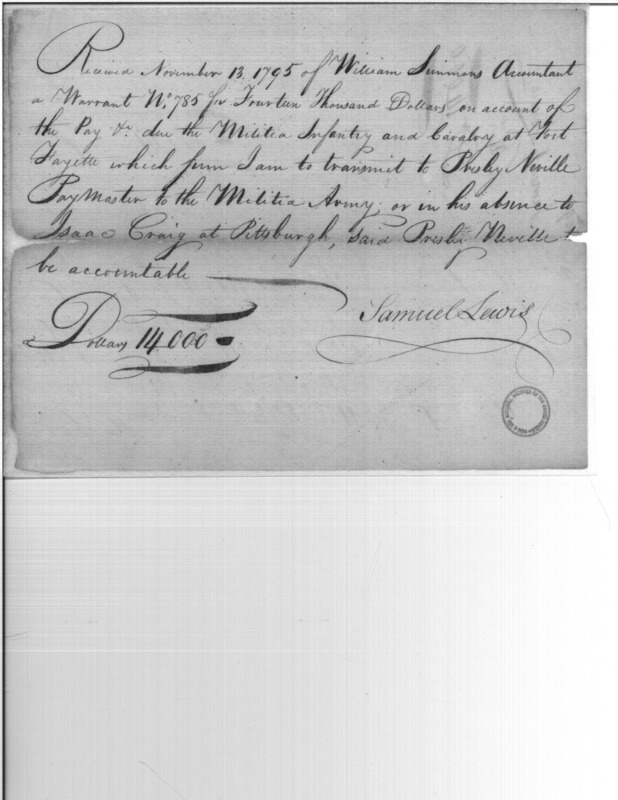 Received November 13. 1795 of William Simmons Accountant
a Warrant No. 785 for Fourteen Thousand Dollars on account of
the Pay &c. due the Militia Infantry and Cavalry at Fort
Fayette which sum I am to transmit to Presley Neville
PayMaster to the Militia Army; or in his absence to
Isaac Craig at Pittsburgh, said Presly Neville to
be accountable
Dollars 14.000
Samuel Lewis